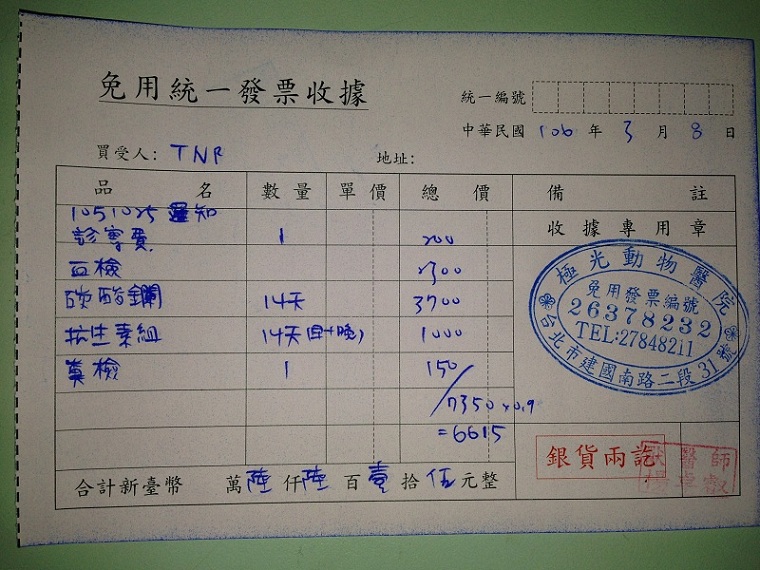 免用統一發票收據
統一編號
中華民國 106 年 3 月 8 日
買受人: TNR 地址:
品名 數量 單價 總價 備註
1051025 遲知 收據專用章
診察費 1 200
血檢 2300
碳酸鑭 14天 3700
抗生素組 14天(早+晚) 1000
糞檢 1 150
7350 x0.9
=6615
極光動物醫院
免用發票編號
26378232
TEL:27848211
台北市建國南路二段31號
銀貨兩訖
獸醫師
合計新臺幣 萬 陸 仟 陸 百 壹 拾 伍 元整